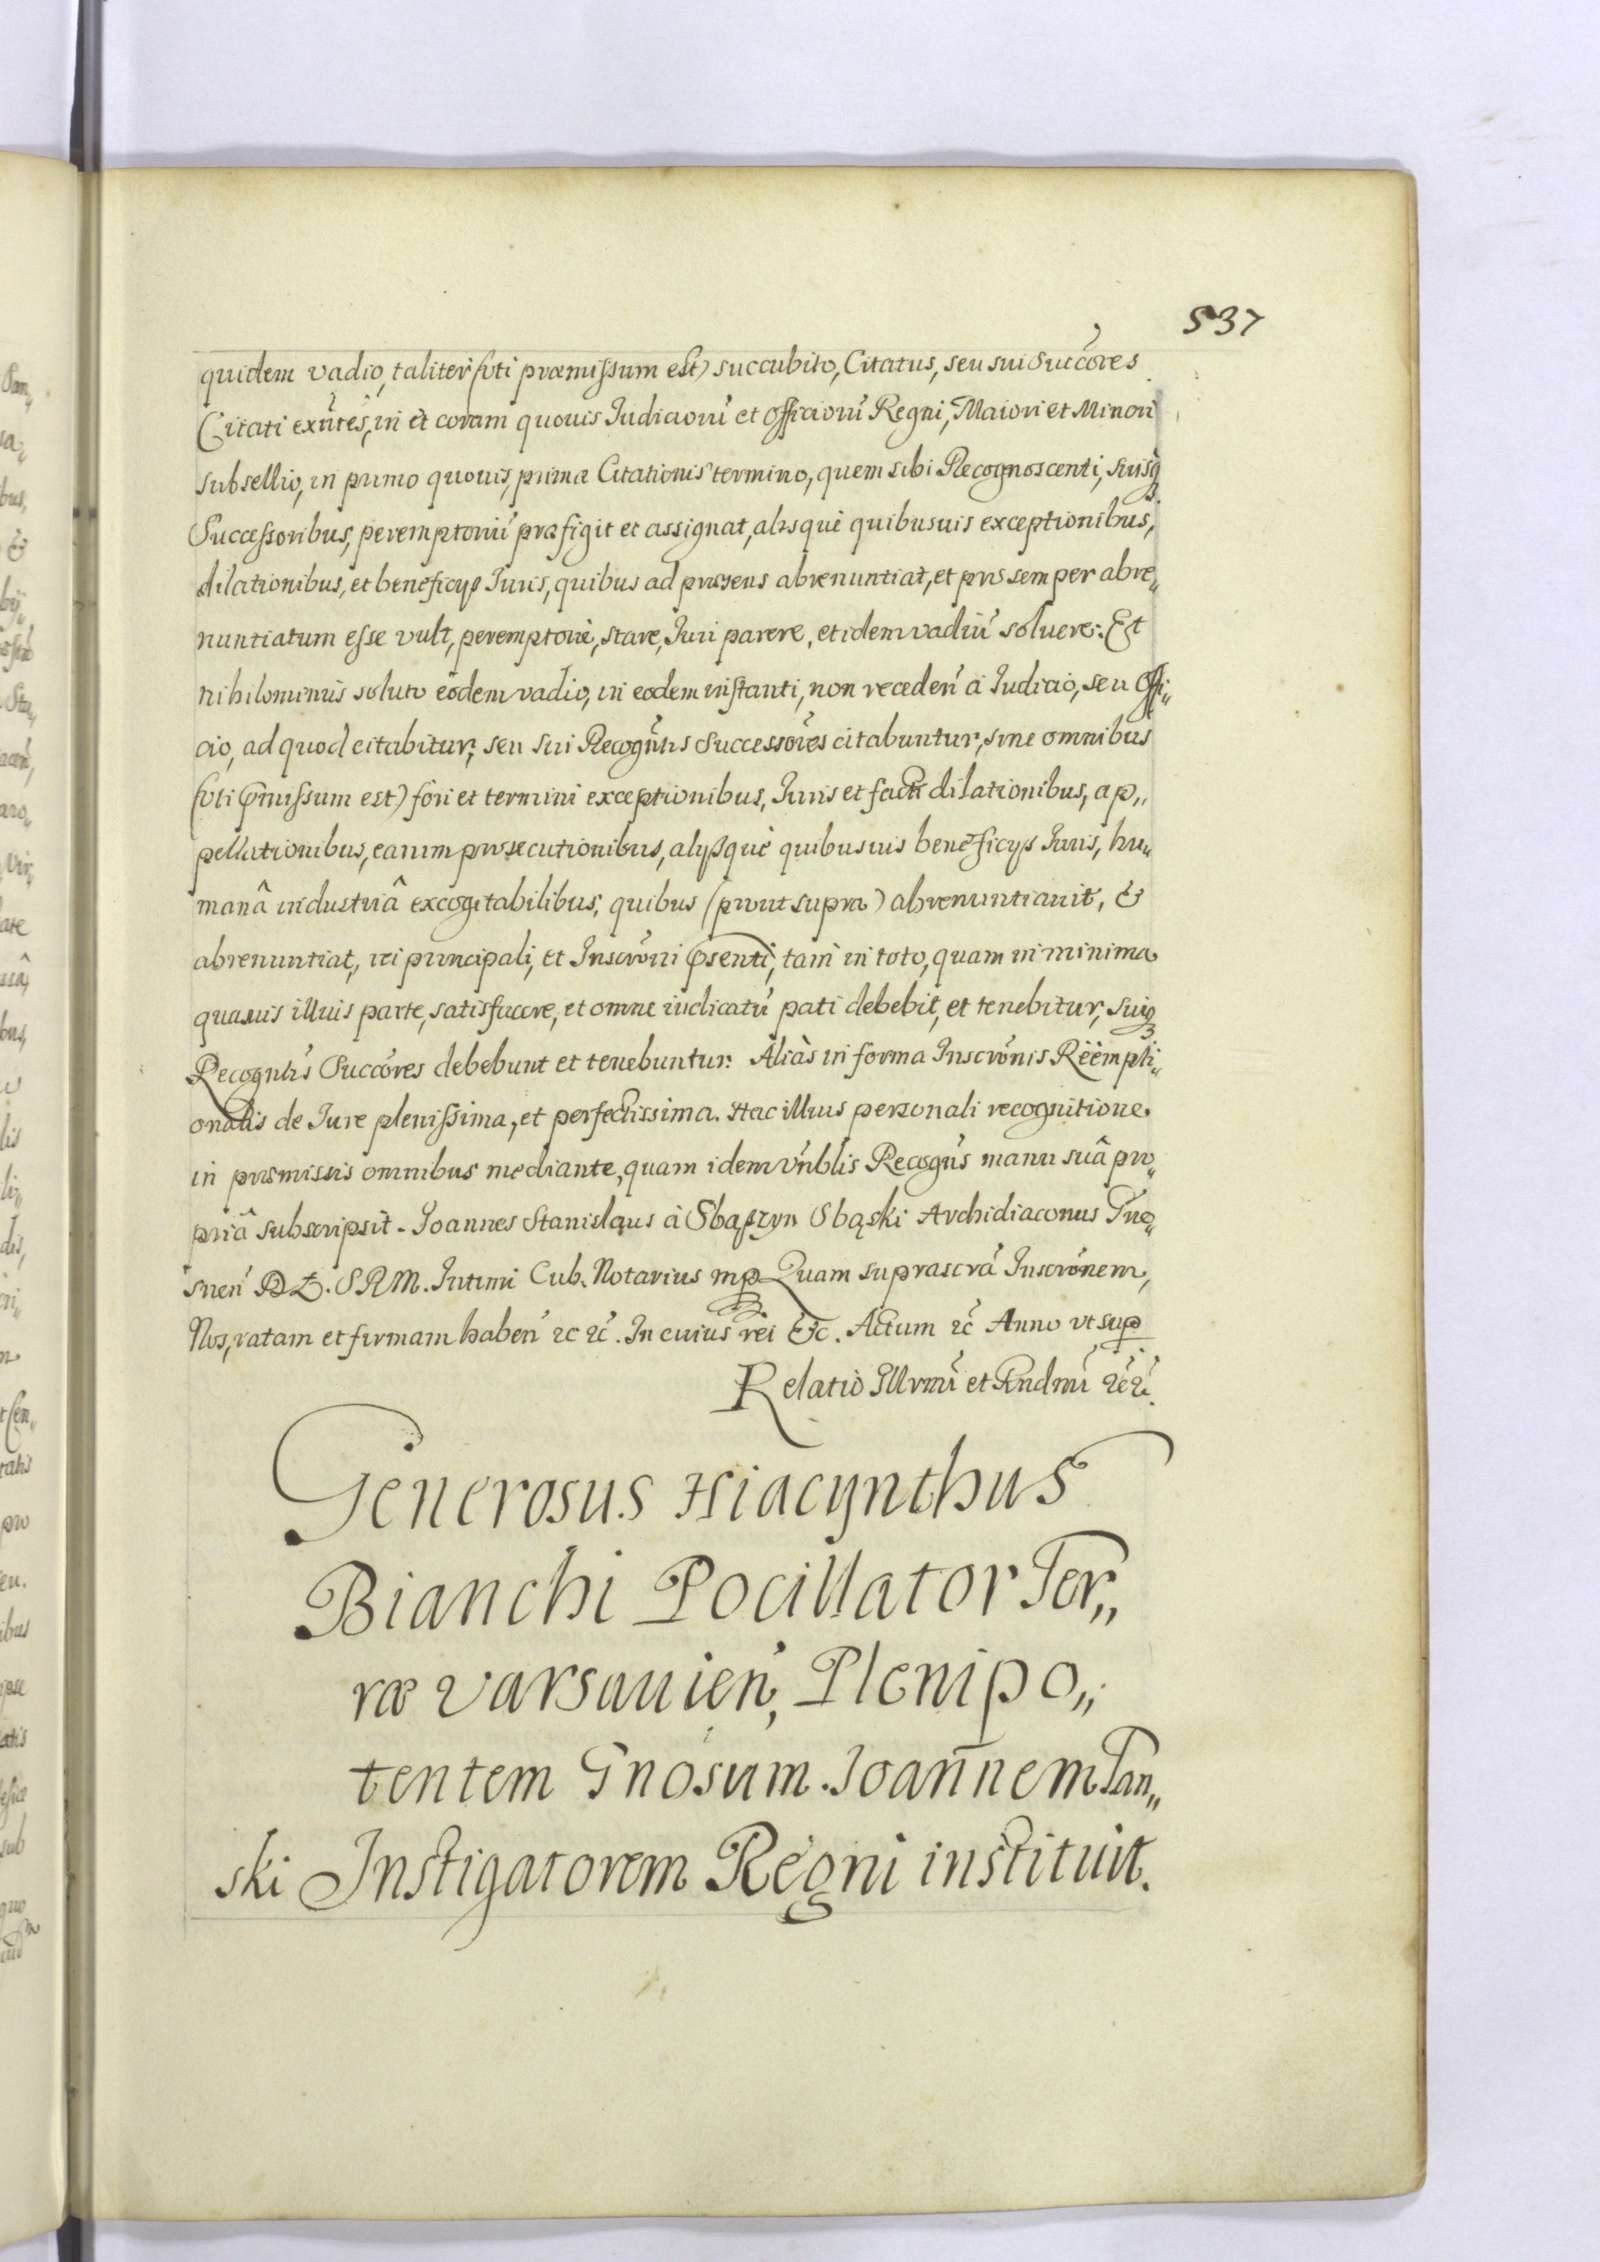 537
quidem vadio, taliter (uti præmissum est) succubito, Citatus, seu sui Succ̃ores
Citati exñtes, in et coram quovis Iudiciorũ et Officiorũ Regni, Maiori et Minori
subsellio, in primo quovis, primæ Citationis termino, quem sibi Recognoscenti, suisq3
Successoribus, peremptoriũ præfigit et assignat, absque quibusuis exceptionibus,
dilationibus, et beneficys Iuris, quibus ad præsens abrenuntiat, et pro semper abre„
nuntiatum esse vult, peremptorie, stare, Iuri parere, et idem vadiũ soluere: Et
nihilominus soluto eodem vadio, in eodem instanti, non receden̄ à Iudicio, seu Offi„
cio, ad quod citabitur, seu sui Recogñtis Successores citabuntur, sine omnibus
(uti p̃missum est) fori et termini exceptionibus, Iuris et facti dilationibus, ap„
pellationibus, earum prosecutionibus, alysque quibusuis beneficys Iuris, hu„
manâ industriâ excogitabilibus, quibus (prout supra) abrenuntiauit, &
abrenuntiat, rei principali, et Inscr̃oni p̃senti, tam in toto, quam in minima
quauis illius parte, satisfacere, et omne iudicatũ pati debebit, et tenebitur, suiq3
Recogñtis Succ̃ores debebunt et tenebuntur. Aliàs in forma Inscr̃onis Reempti„
onalis de Iure plenissima, et perfectissima. Hac illius personali recognitione
in præmissis omnibus mediante, quam idem Vñblis Recogñs manu suâ pro„
priâ subscripsit. Joannes Stanislaus à Sbąszyn Sbąski Archidiaconus Gne„
snen̄ S R M. Intimi Cub. Notarius mp. Quam suprascr̃ã Inscr̃onem,
Nos, ratam et firmam haben̄ ꝛc ꝛc. In cuius rei &c. Actum ꝛc Anno vt sup
Relatio Illrmi et Rndmi ꝛc ꝛc.
Generosus Hiacynthus
Bianchi Pocillator Ter„
ræ Varsauien̄, Plenipo„
tentem Gnosum Joannem Tan„
ski Instigatorem Regni instituit.